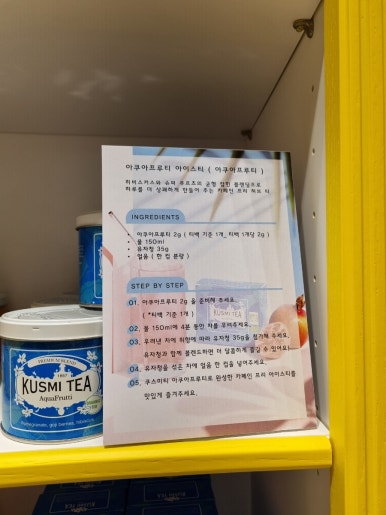 아쿠아프루티 아이스티 ( 아쿠아프루티 )
히비스커스와 슈퍼 푸르츠의 균형 잡힌 블렌딩으로
하루를 더 상쾌하게 만들어 주는 카페인 프리 허브 티
INGREDIENTS
• 아쿠아프루티 2g ( 티백 기준 1개, 티백 1개당 2g )
• 물 150ml
• 유자청 35g
• 얼음 ( 한 컵 분량 )
STEP BY STEP
01. 아쿠아프루티 2g 을 준비해 주세요.
( *티백 기준 1개 )
02. 물 150ml에 4분 동안 차를 우려주세요.
03. 우려낸 차에 취향에 따라 유자청 35g을 첨가해 주세요.
유자청과 함께 블렌드하면 더 달콤하게 즐길 수 있어요!
04. 유자청을 섞은 차에 얼음 한 컵을 넣어주세요.
05. 쿠스미티 아쿠아프루티로 완성한 카페인 프리 아이스티를
맛있게 즐겨주세요.
1867
KUSMI TEA
AquaFrutti
Pomegranate, goji berries, hibiscus
KUSMI TEA